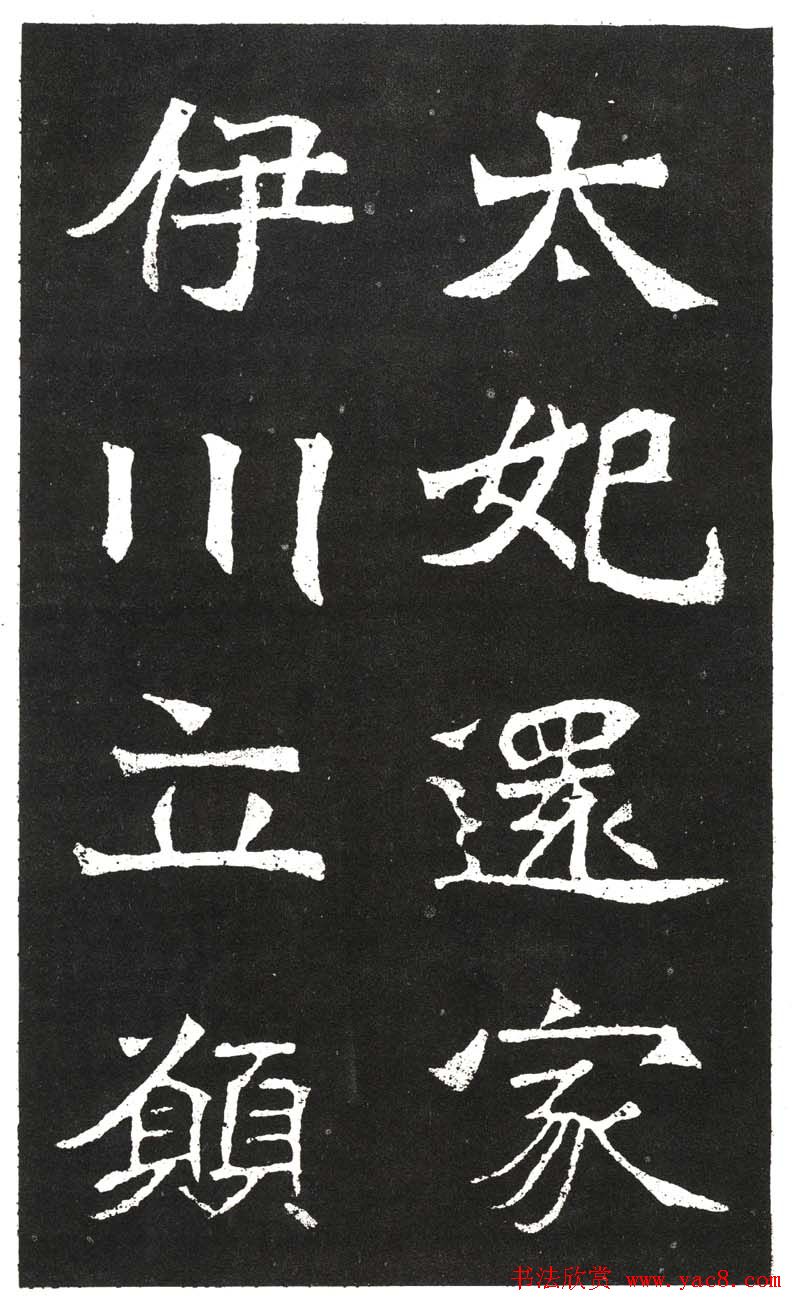 太妃還家
伊川立願
书法欣赏 www.yac8.com